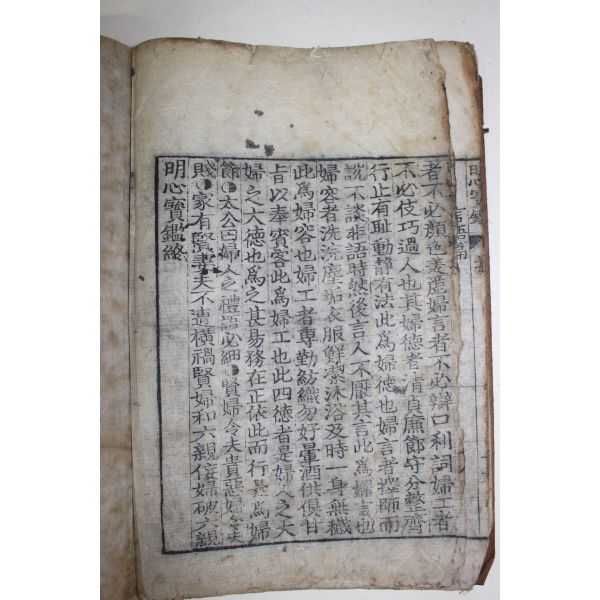 明心寶鑑
者不必顔色美麗婦言者不必辯口利詞婦工者
不必伎巧過人也其婦德者清貞廉節守分整齊
行止有耻動靜有法此爲婦德也婦言者擇師而
說不談非語時然後言人不厭其言此爲婦言也
婦容者洗浣塵垢衣服鮮潔沐浴及時一身無穢
此爲婦容也婦工者專勤紡織勿好暈酒供俱甘
旨以奉賓客此爲婦工也此四德者是婦人之大
婦之大德也爲之甚易務在正依此而行是爲婦
節●太公曰婦人之禮語必細●賢婦令夫貴惡婦令夫
賤●家有賢妻夫不遭橫禍賢婦和六親佞婦破六親
明心寶鑑終